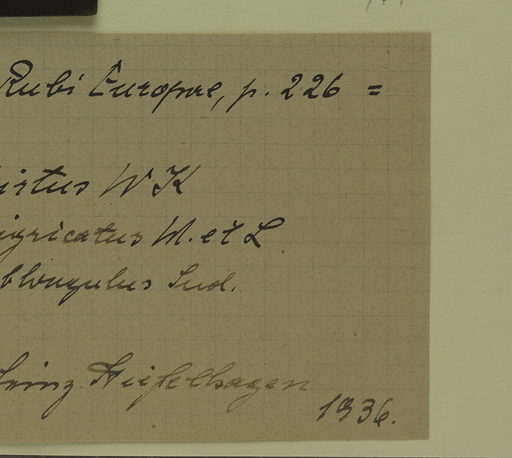 Rubi Europae, p. 226 =
irtus W K
igricatus M. et L
blongulus Sud.
Stiefelhagen
1936.